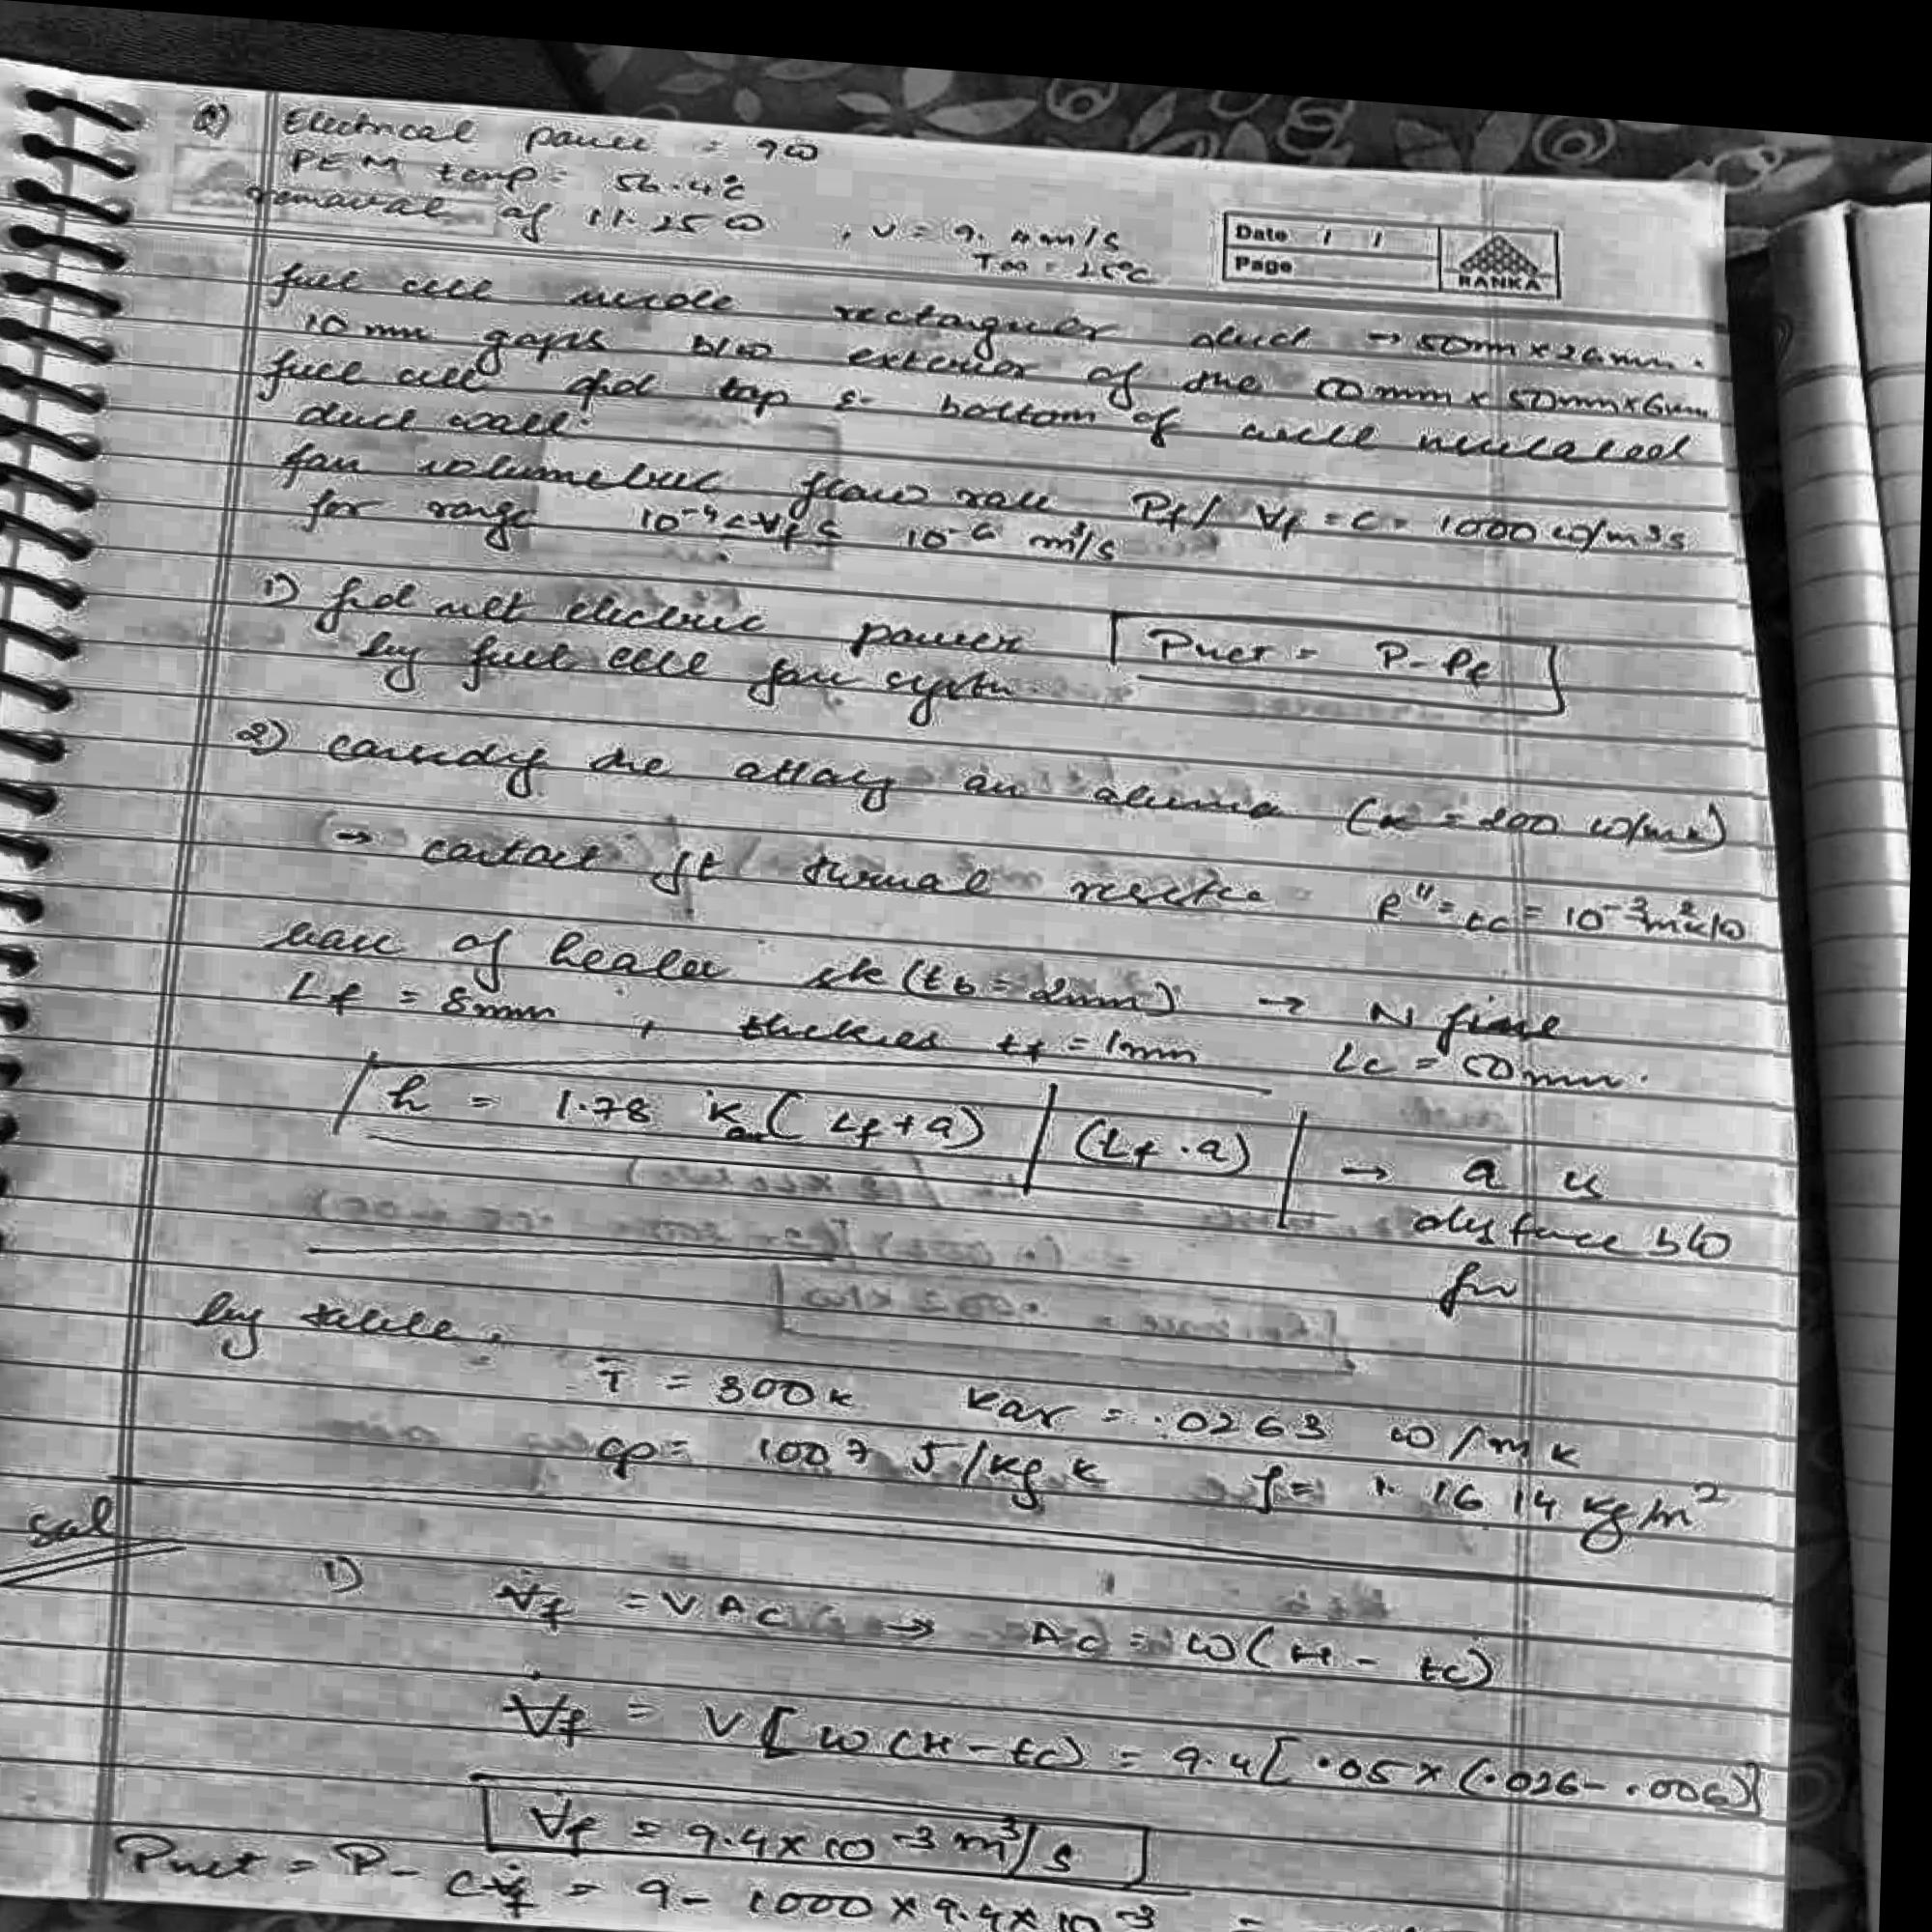 Q) Electrical power = 9W
PEM temp = 56.4°C
removal of 11.25 W , V = 9.4 m/s
T∞ = 25°C
Date / /
Page
RANKA
fuel cell inside rectanguler duct → 50mm x 26mm.
10 mm gaps b/w exterior of the 50mm x 50mm x 6mm
fuel cell and top & bottom of well insulated
duct wall.
fan volumetric flow rate Pf/ ∀f = C = 1000 W/m³s
for range 10⁻⁴ < ∀f ≤ 10⁻² m³/s
1) find net electric power Pnet = P - Pf
by fuel cell fan system
2) the attay an alumina (K = 200 W/mK)
→ contact jt thermal R"tc = 10⁻³ m²K/W
base of heater sk (tb = 2mm) → N fins
Lf = 8mm , thicknes tf = 1mm Lc = 50mm.
h = 1.78 Kair ( Lf + a) / (Lf . a) → a is
distance b/w
fin
by table,
T̄ = 300K Kair = .0263 W/mK
Cp = 1007 J/kg K ρ = 1.1614 kg/m²
Sol
1) ∀̇f = V Ac → Ac = W(H - tc)
∀̇f = V[ W (H - tc) = 9.4[ .05 × (.026 - .006)]
∀̇f = 9.4 × 10⁻³ m³/s
Pnet = P - C∀̇f = 9 - 1000 × 9.4 × 10⁻³ =